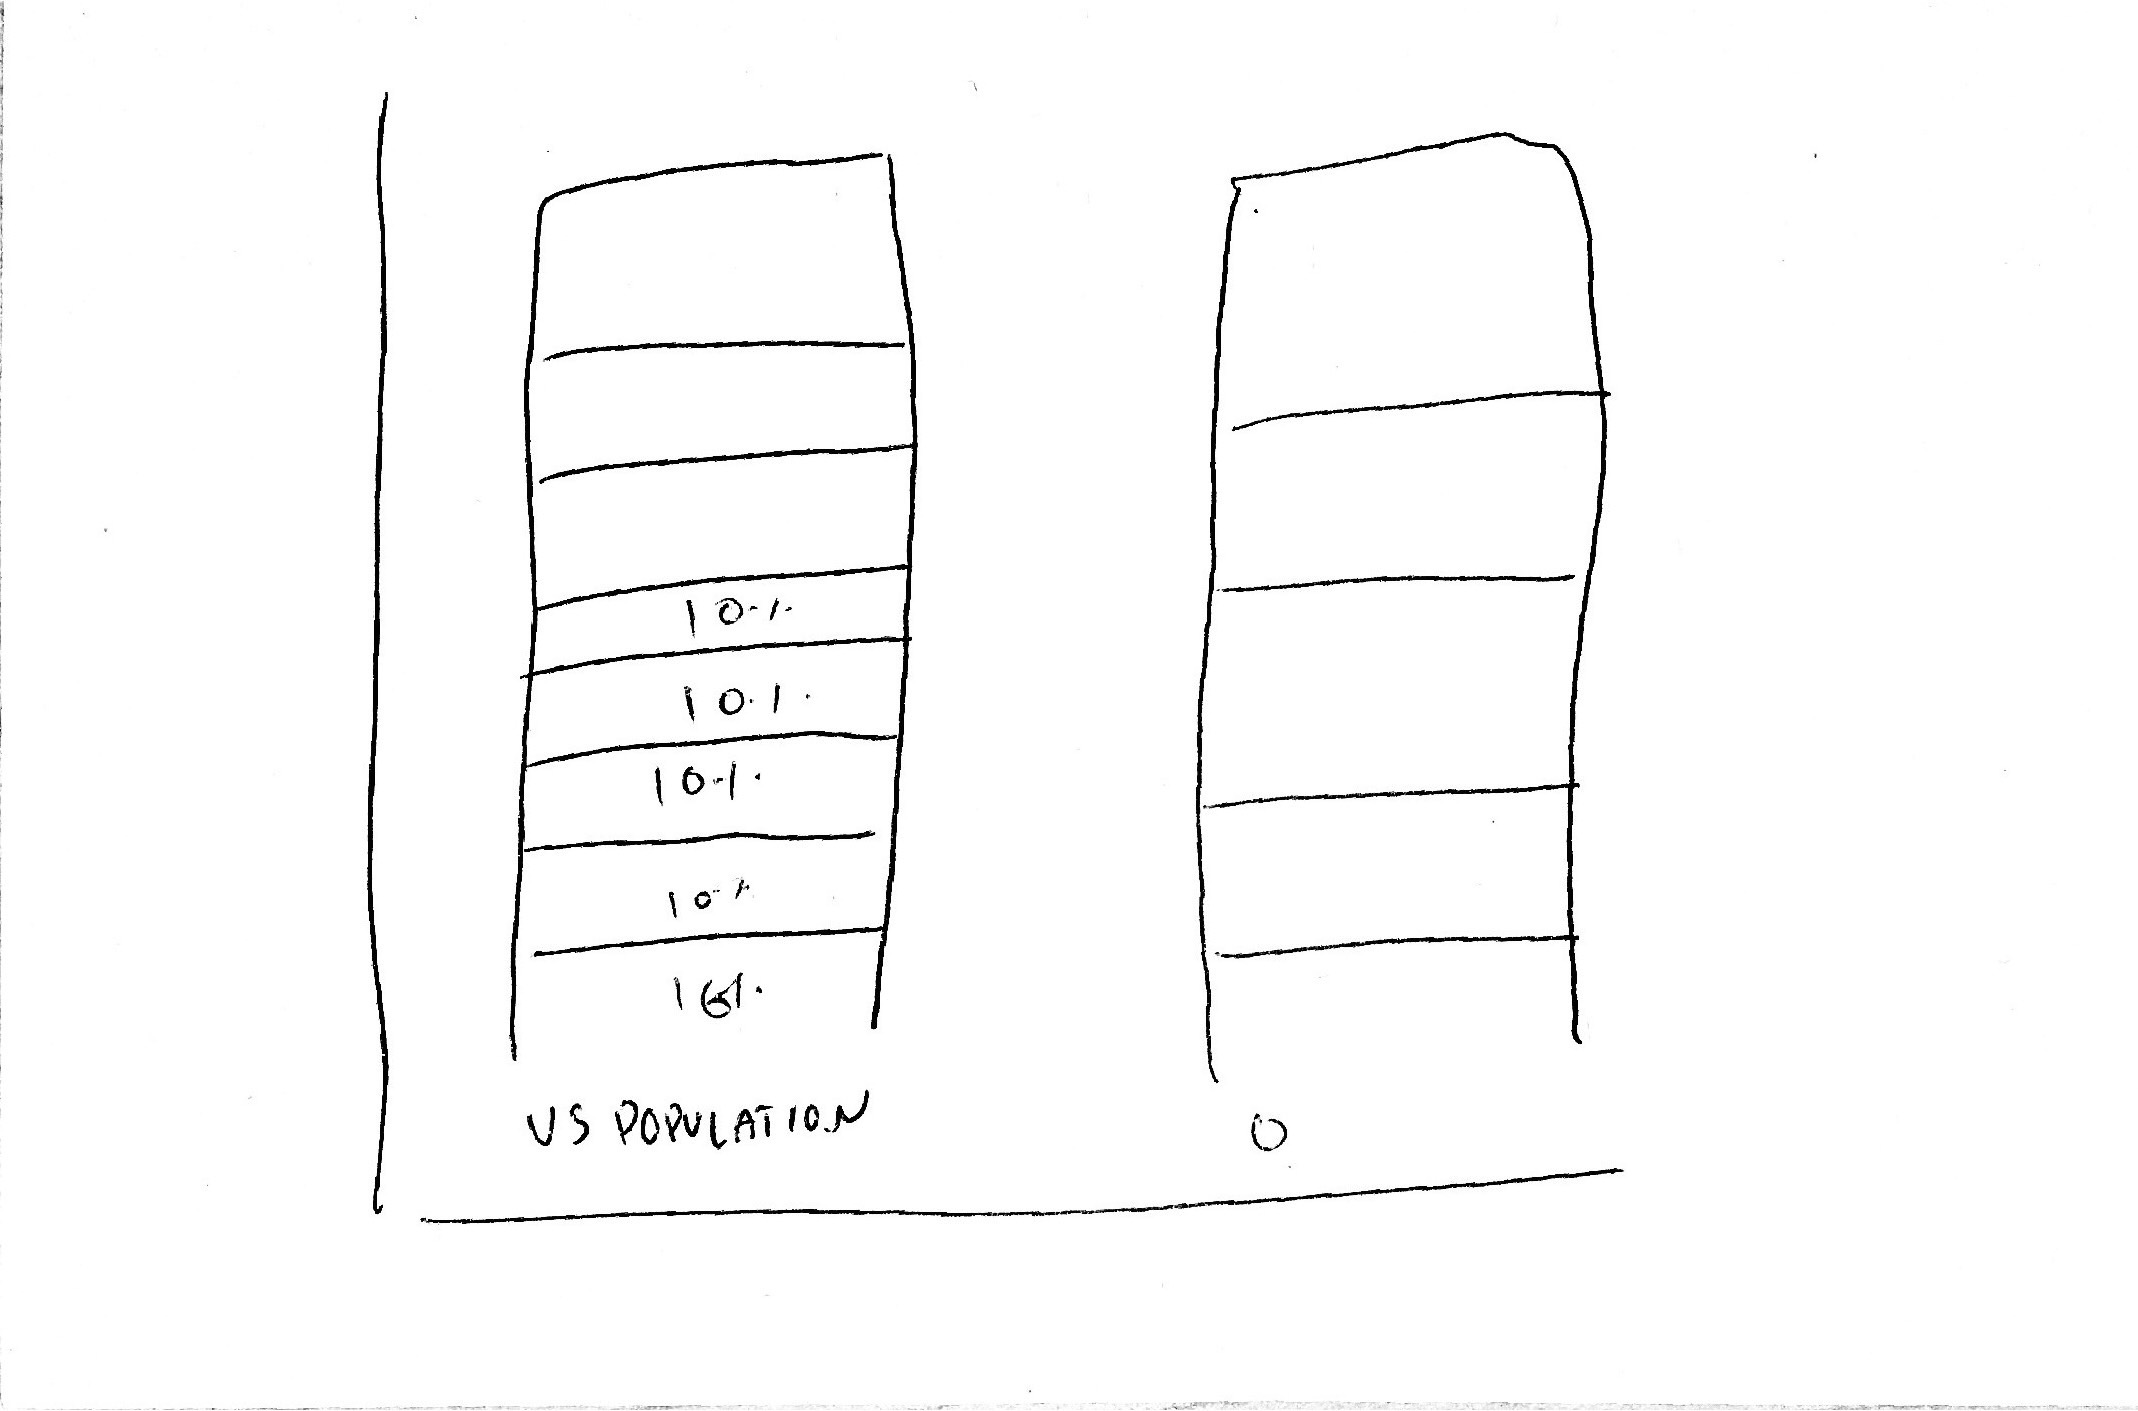 10%
10%
10%
10%
US POPULATION
0